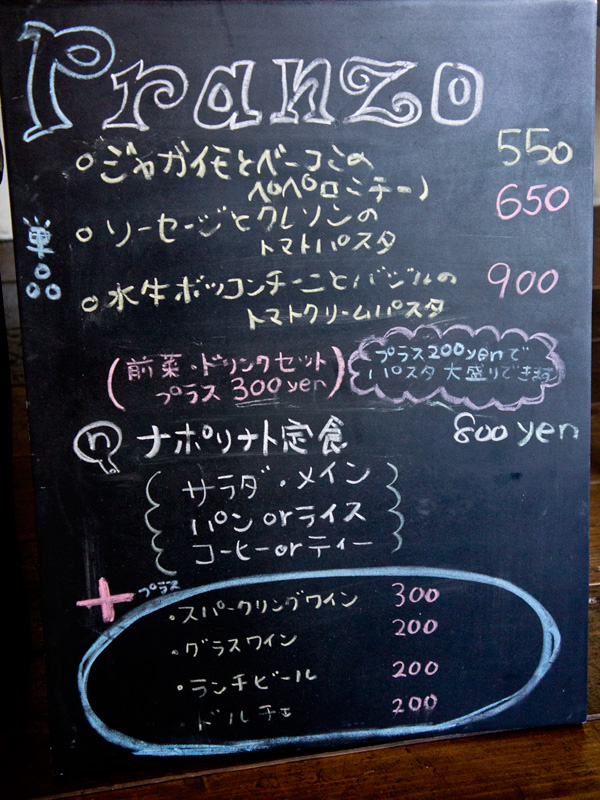 Pranzo
○ジャガイモとベーコンの 550
ペペロンチーノ
単品
○ソーセージとクレソンの 650
トマトパスタ
○水牛ボッコンチーニとバジルの 900
トマトクリームパスタ
(前菜・ドリンクセット
プラス 300yen)
プラス200yenで
パスタ大盛りできます
n ナポリナト定食 800yen
サラダ・メイン
パン orライス
コーヒーorティー
+プラス
・スパークリングワイン 300
・グラスワイン 200
・ランチビール 200
ドルチェ 200